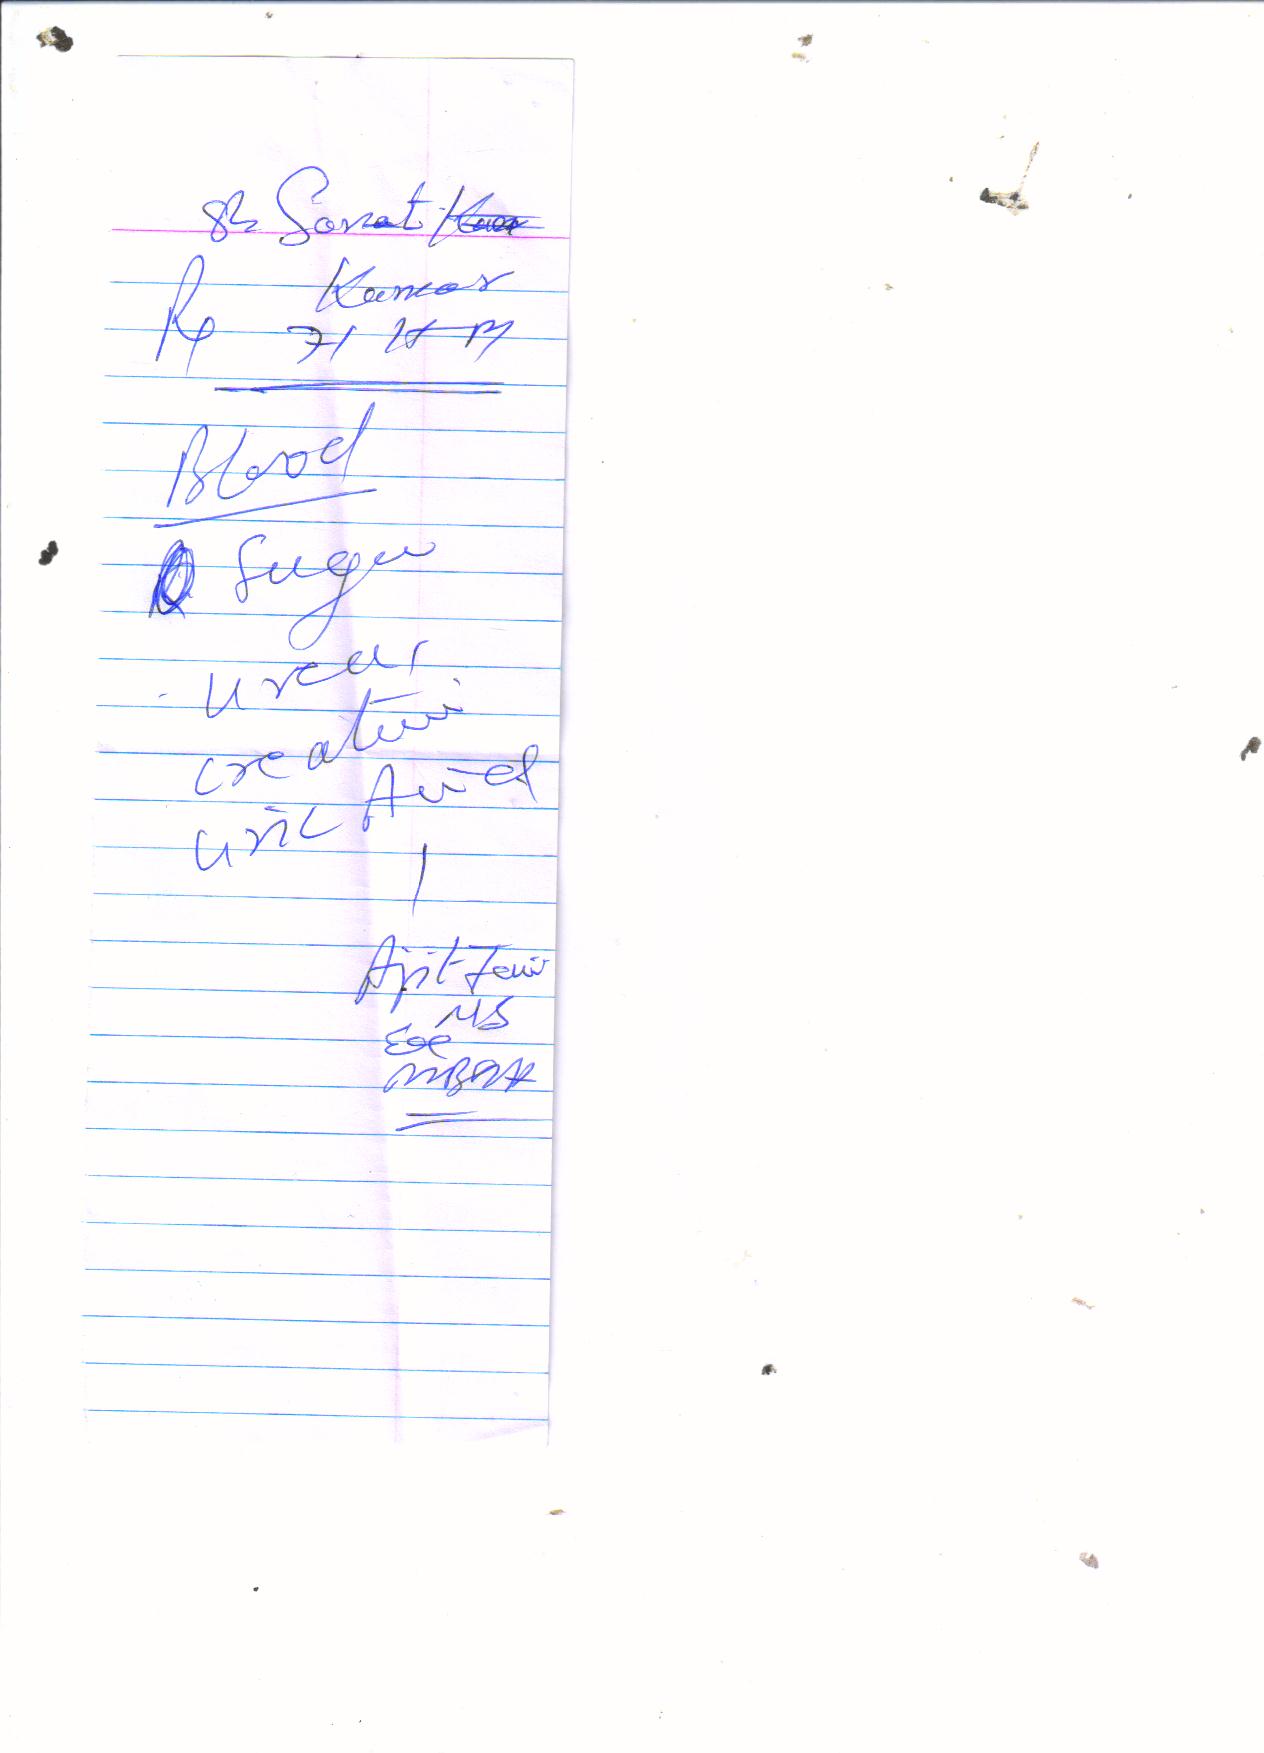 Sh Sanat
Kumar
Rx 71 Yr M
Blood
Sugar
urea
creatini
uric Acid
Ajit Jain
MS